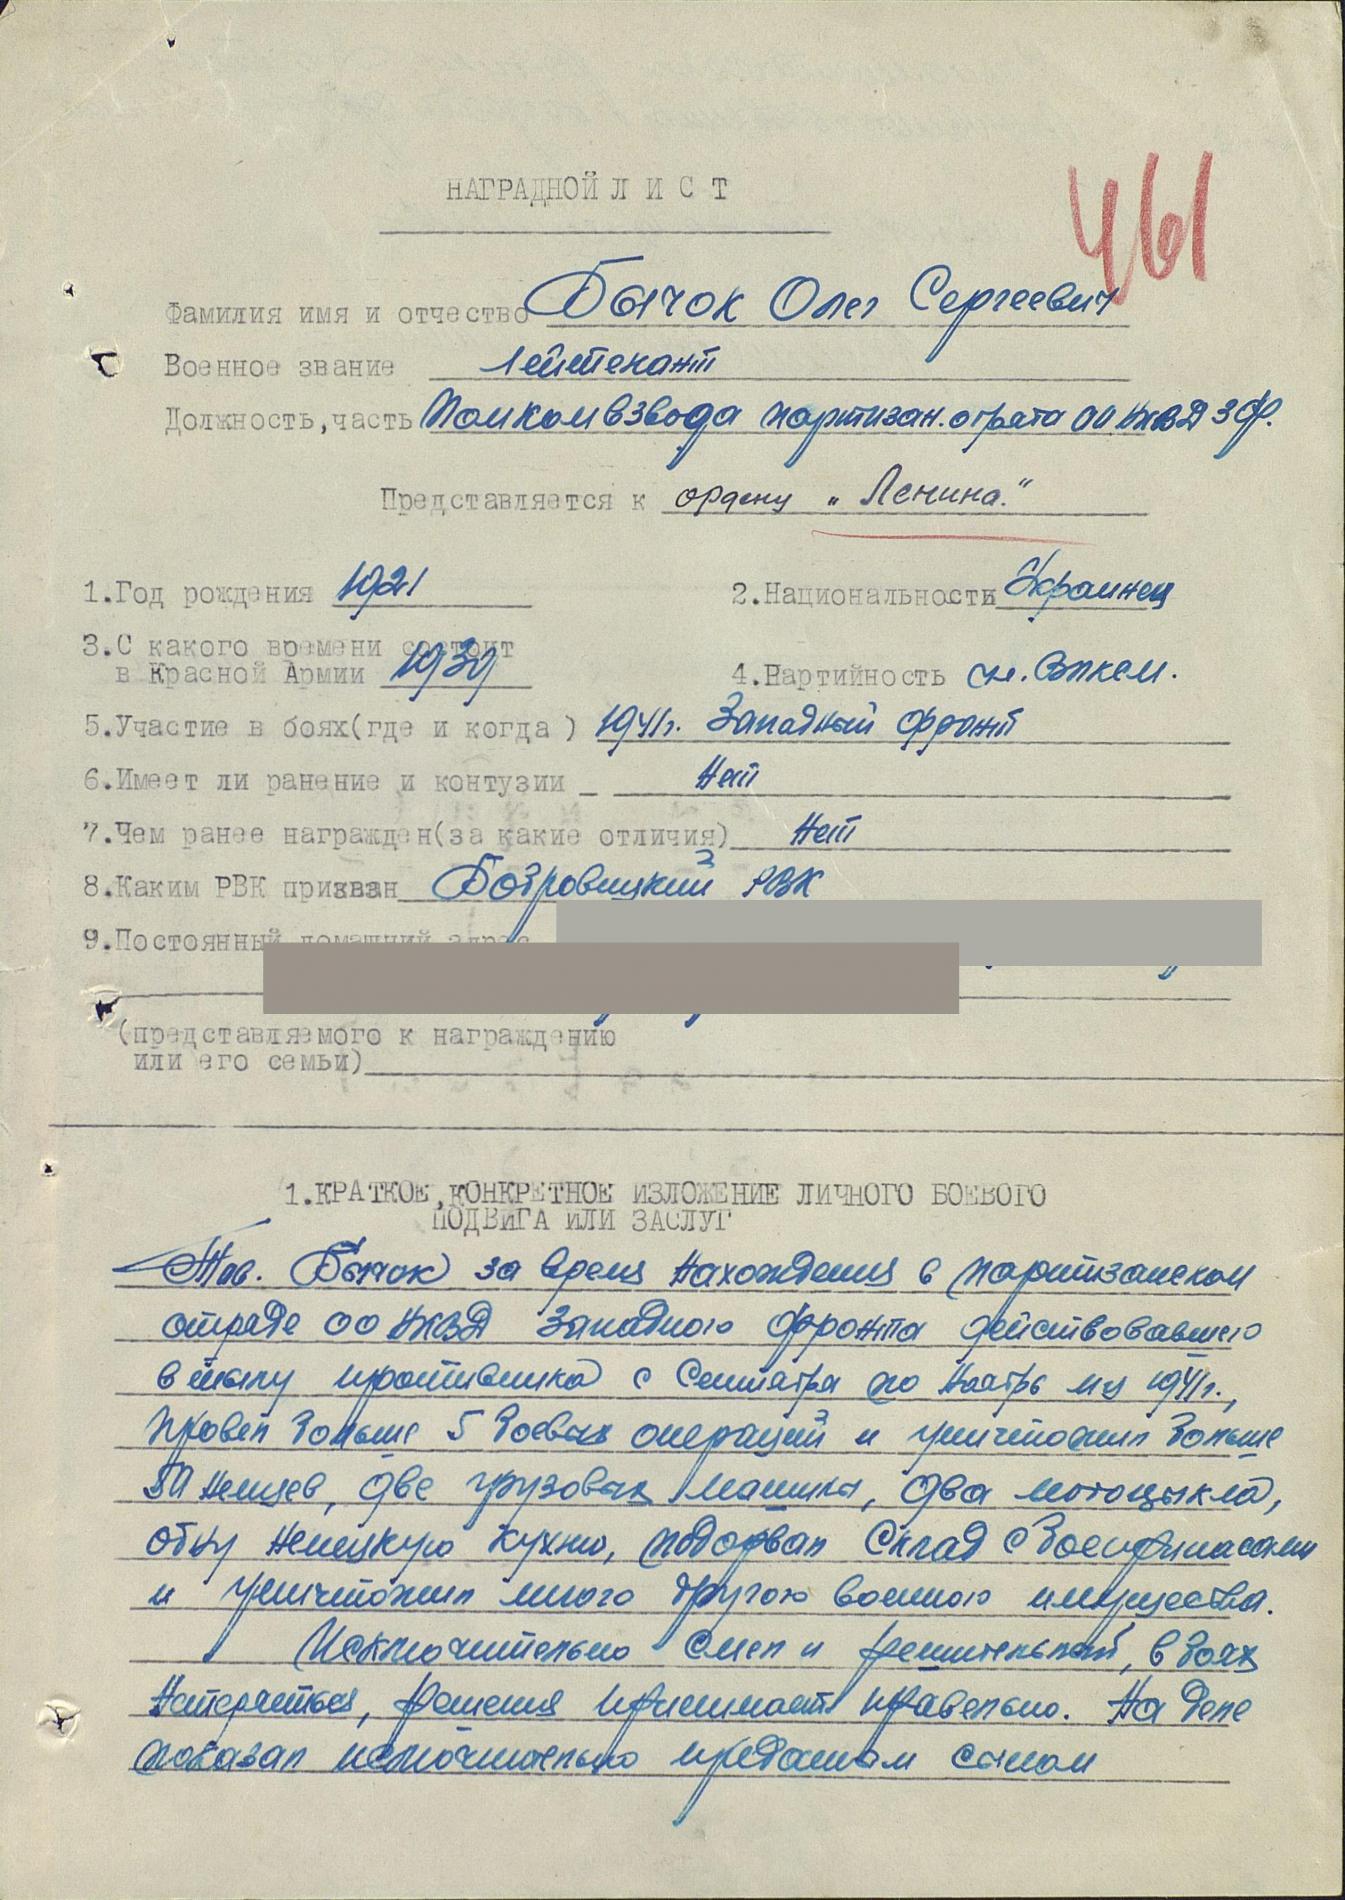 461
НАГРАДНОЙ Л И С Т
Фамилия имя и отчество Бычок Олег Сергеевич
Военное звание Лейтенант
Должность,часть Помкомвзвода партизан. отрята ОО НКВД З Ф.
Представляется к ордену „Ленина."
1.Год рождения 1921
2.Национальности Украинец
3.С какого времени состоит
в Красной Армии 1939
4.Партийность чл. ВЛКСМ.
5.Участие в боях(где и когда ) 1941г. Западный фронт
6.Имеет ли ранение и контузии _ Нет
7.Чем ранее награжден(за какие отличия) Нет
8.Каким РВК призван РВК
9.Постоянный домашний адрес
(представляемого к награждению
или его семьи)
1.КРАТКОЕ,КОНКРЕТНОЕ ИЗЛОЖЕНИЕ ЛИЧНОГО БОЕВОГО
ПОДВИГА ИЛИ ЗАСЛУГ
Тов. Бычок за время нахождения в партизанском
отряде ОО НКВД Западного фронта действовавшего
в тылу противника с по м-ц 1941г.,
провел больше 5 боевых операций и уничтожил больше
50 немцев, две грузовых машины, два мотоцыкла,
одну немецкую кухню, подорвал склад с боеприпасами
и уничтожил много другого военного имущества.
Исключительно смел и решительный, в боях
решения принимает правельно. На деле
показал исключительно преданым сыном